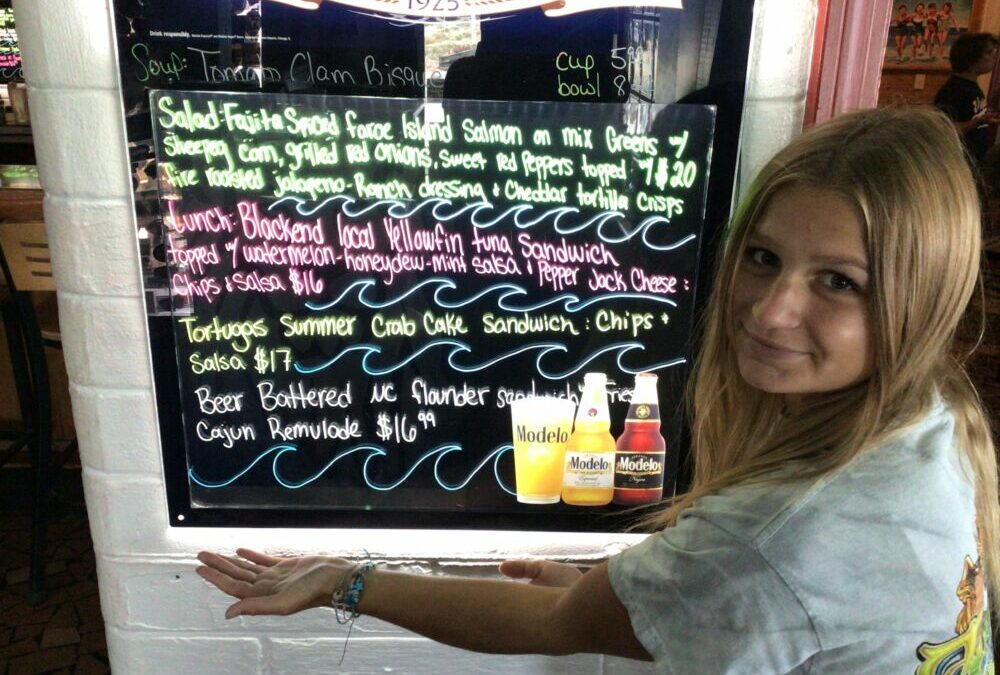 1925
Drink responsibly.
Soup: Tomato Clam Bisque cup 5.99
bowl 8
Salad-Fajita Spiced faroe Island Salmon on mix Greens w/
Sheepeg corn, grilled red onions, sweet red Peppers topped w/ $20
fire roasted jalapeno-Ranch dressing & Cheddar tortilla Crisps
Lunch: Blackend local Yellowfin tuna Sandwich
topped w/ watermelon-honeydew-mint salsa & Pepper Jack Cheese :
Chips & Salsa $16
Tortuggs Summer Crab Cake Sandwich : Chips +
Salsa $17
Beer Battered NC flounder sandwich Fries
Cajun Remulade $16.99
Modelo
Modelo
Especial
Modelo
Negra